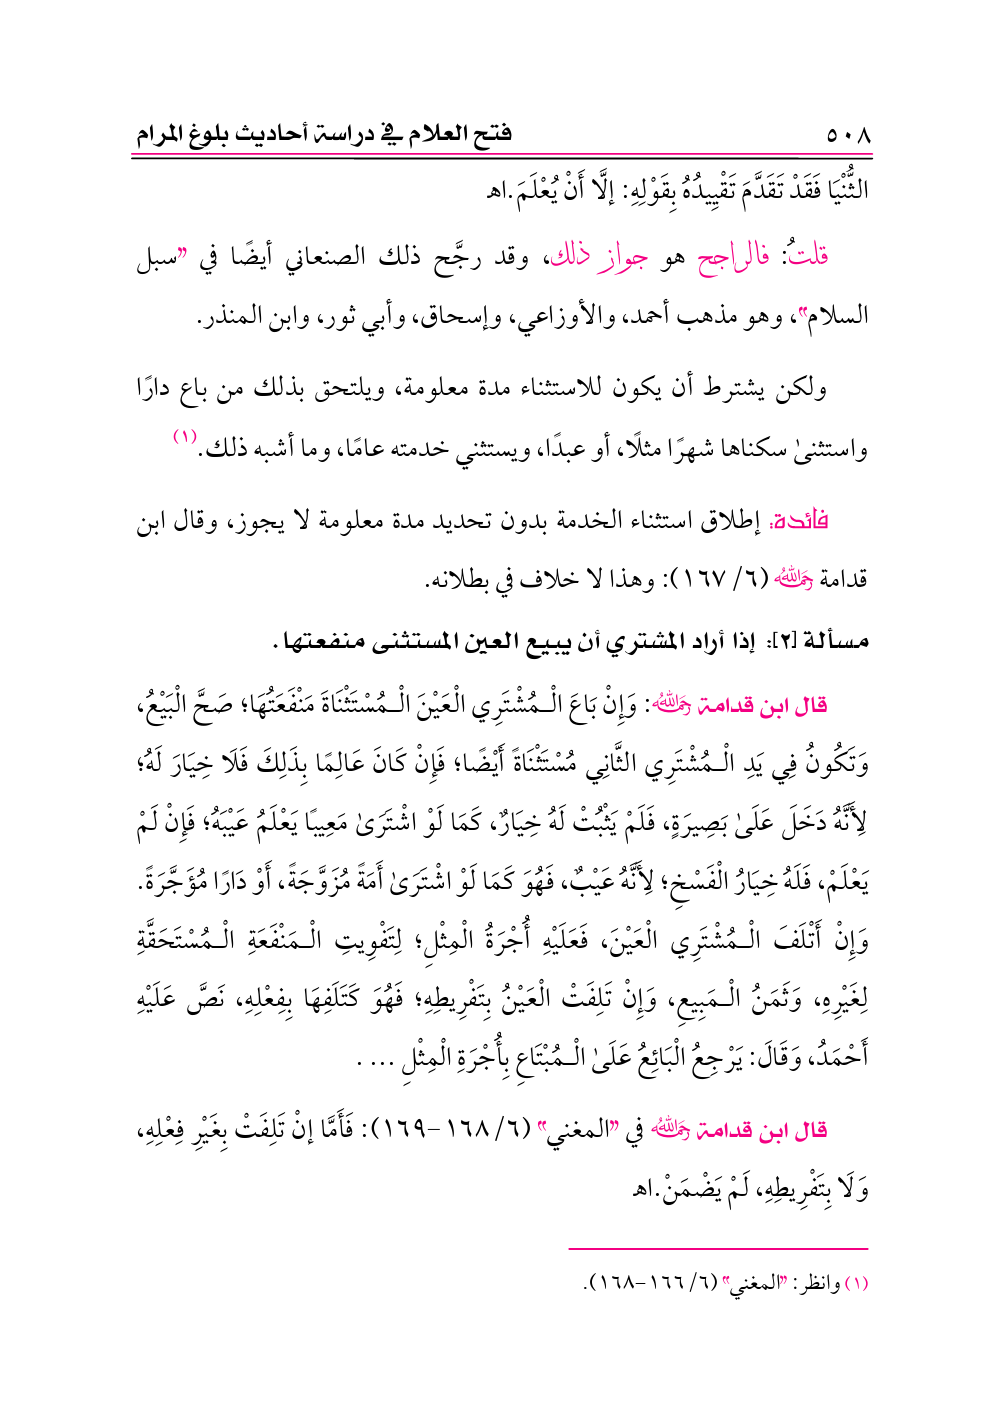 ٥٠٨ فتح العلام في دراسة أحاديث بلوغ المرام
الثُّنْيَا فَقَدْ تَقَدَّمَ تَقْيِيدُهُ بِقَوْلِهِ: إلَّا أَنْ يُعْلَمَ.اﻫ
قلتُ: فالراجح هو جواز ذلك، وقد رجَّح ذلك الصنعاني أيضًا في "سبل
السلام"، وهو مذهب أحمد، والأوزاعي، وإسحاق، وأبي ثور، وابن المنذر.
ولكن يشترط أن يكون للاستثناء مدة معلومة، ويلتحق بذلك من باع دارًا
واستثنىٰ سكناها شهرًا مثلًا، أو عبدًا، ويستثني خدمته عامًا، وما أشبه ذلك.(١)
فائدة: إطلاق استثناء الخدمة بدون تحديد مدة معلومة لا يجوز، وقال ابن
قدامة رحمه الله (٦/ ١٦٧): وهذا لا خلاف في بطلانه.
مسألة [٢]: إذا أراد المشتري أن يبيع العين المستثنى منفعتها.
قال ابن قدامة رحمه الله: وَإِنْ بَاعَ الْـمُشْتَرِي الْعَيْنَ الْـمُسْتَثْنَاةَ مَنْفَعَتُهَا؛ صَحَّ الْبَيْعُ،
وَتَكُونُ فِي يَدِ الْـمُشْتَرِي الثَّانِي مُسْتَثْنَاةً أَيْضًا؛ فَإِنْ كَانَ عَالِمًا بِذَلِكَ فَلَا خِيَارَ لَهُ؛
لِأَنَّهُ دَخَلَ عَلَىٰ بَصِيرَةٍ، فَلَمْ يَثْبُتْ لَهُ خِيَارٌ، كَمَا لَوْ اشْتَرَىٰ مَعِيبًا يَعْلَمُ عَيْبَهُ؛ فَإِنْ لَمْ
يَعْلَمْ، فَلَهُ خِيَارُ الْفَسْخِ؛ لِأَنَّهُ عَيْبٌ، فَهُوَ كَمَا لَوْ اشْتَرَىٰ أَمَةً مُزَوَّجَةً، أَوْ دَارًا مُؤَجَّرَةً.
وَإِنْ أَتْلَفَ الْـمُشْتَرِي الْعَيْنَ، فَعَلَيْهِ أُجْرَةُ الْمِثْلِ؛ لِتَفْوِيتِ الْـمَنْفَعَةِ الْـمُسْتَحَقَّةِ
لِغَيْرِهِ، وَثَمَنُ الْـمَبِيعِ، وَإِنْ تَلِفَتْ الْعَيْنُ بِتَفْرِيطِهِ؛ فَهُوَ كَتَلَفِهَا بِفِعْلِهِ، نَصَّ عَلَيْهِ
أَحْمَدُ، وَقَالَ: يَرْجِعُ الْبَائِعُ عَلَىٰ الْـمُبْتَاعِ بِأُجْرَةِ الْمِثْلِ ... .
قال ابن قدامة رحمه الله في "المغني" (٦/ ١٦٨-١٦٩): فَأَمَّا إنْ تَلِفَتْ بِغَيْرِ فِعْلِهِ،
وَلَا بِتَفْرِيطِهِ، لَمْ يَضْمَنْ.اﻫ
(١) وانظر: "المغني" (٦/ ١٦٦-١٦٨).